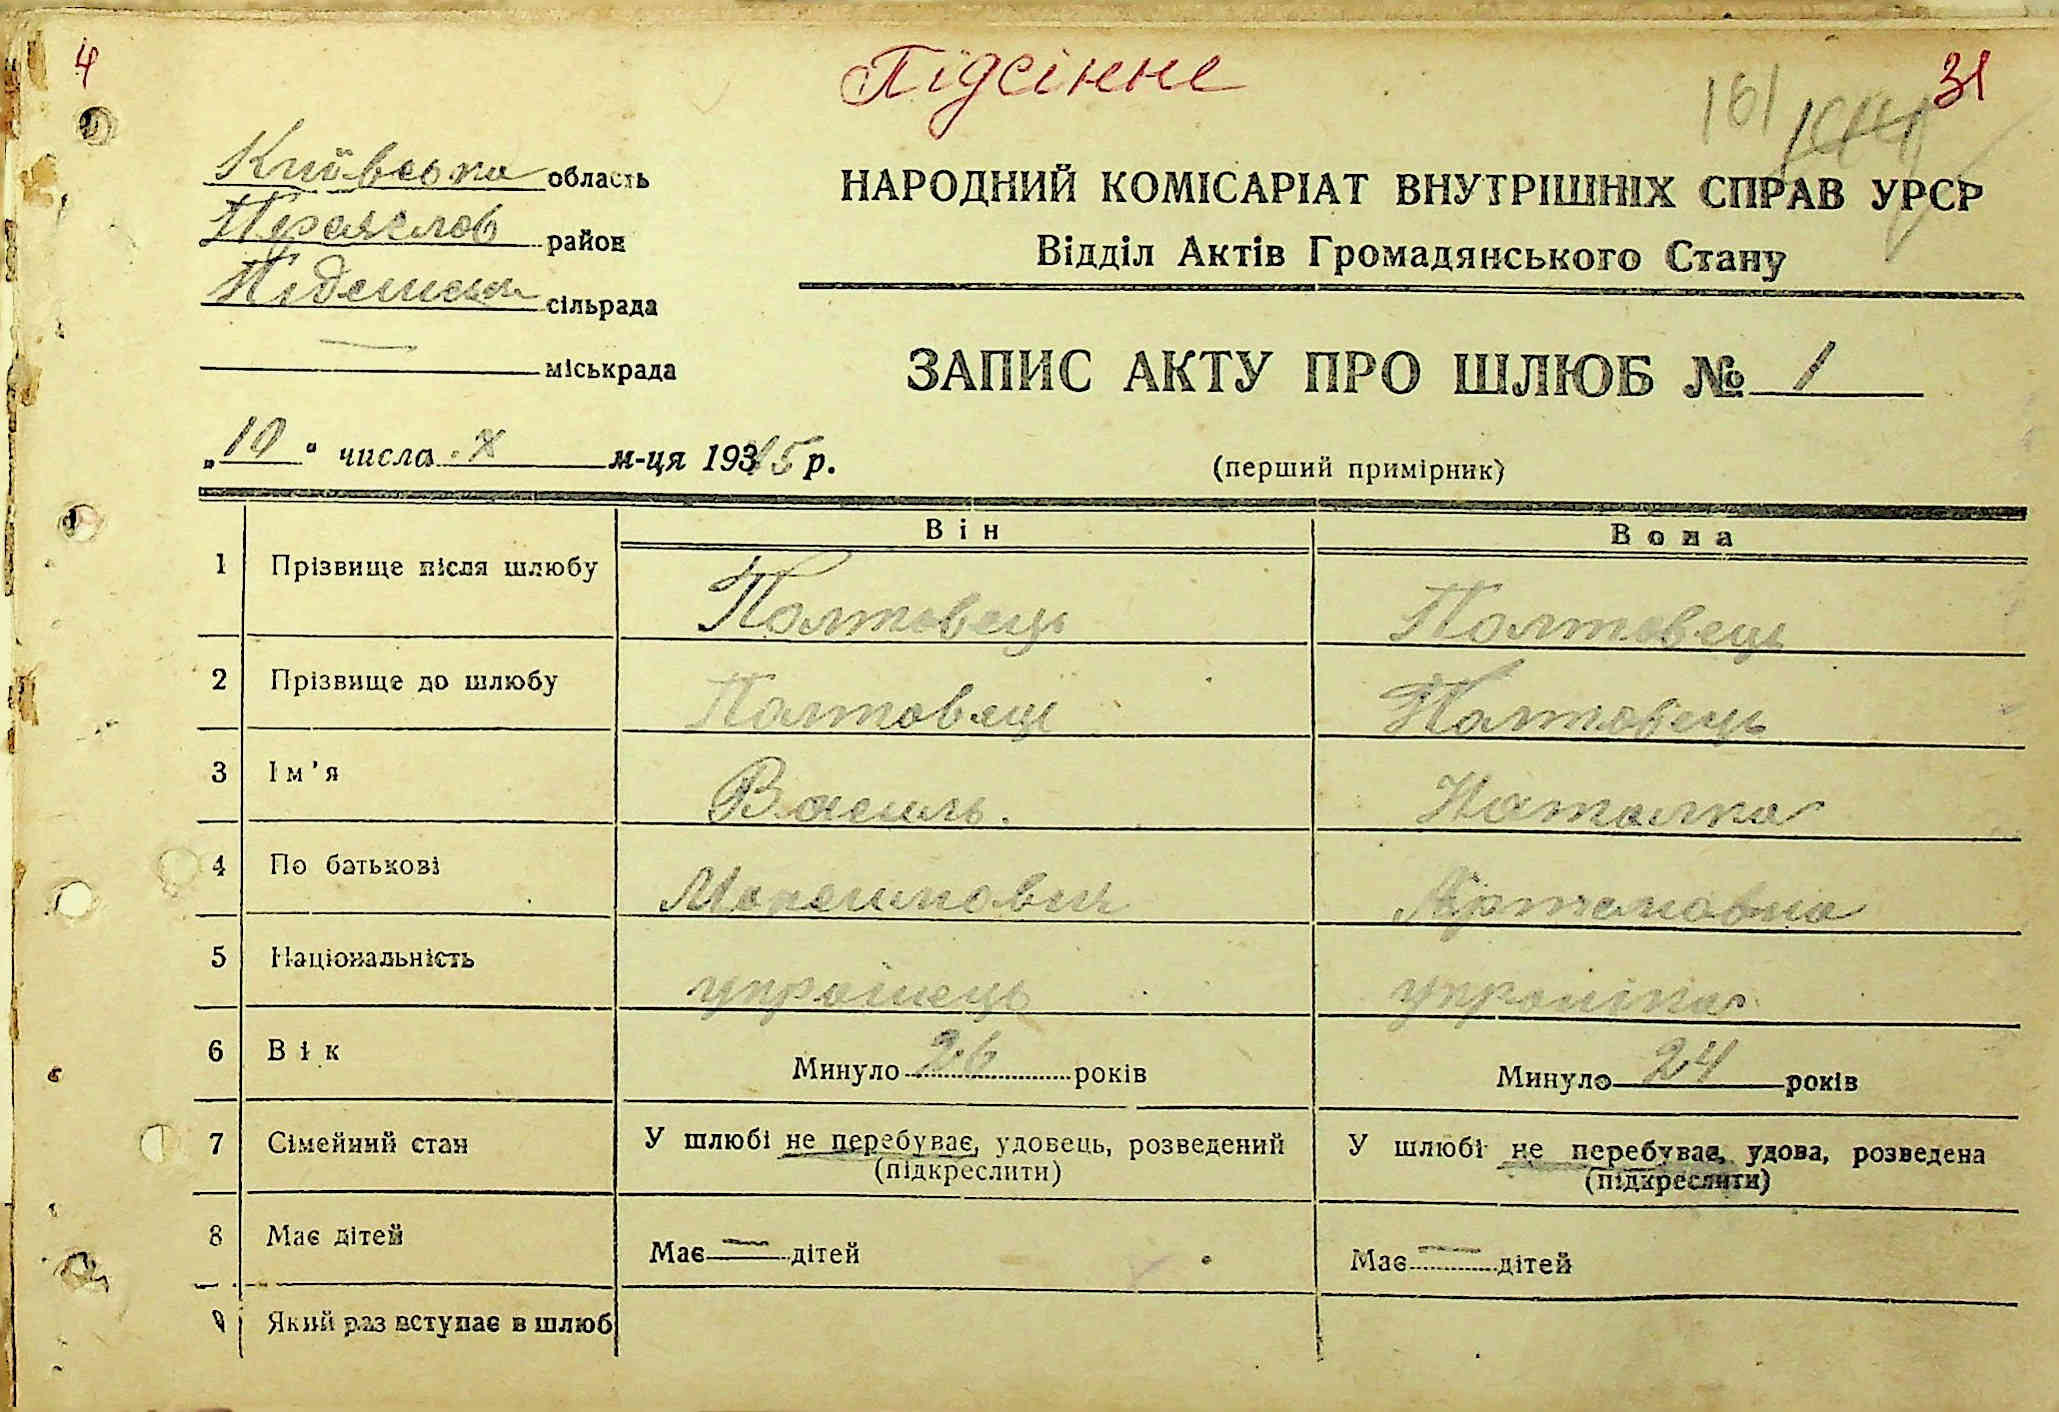 4
Підсінне
31
161
Київська область
НАРОДНИЙ КОМІСАРІАТ ВНУТРІШНІХ СПРАВ УРСР
район
Відділ Актів Громадянського Стану
сільрада
міськрада
ЗАПИС АКТУ ПРО ШЛЮБ № 1
„10" числа X м-ця 1945 р.
(перший примірник)
Він
Вона
1 Прізвище після шлюбу Полтовець Полтовець
2 Прізвище до шлюбу Полтовець Полтовець
3 Ім'я Василь. Наталка
4 По батькові Максимович Артемовна
5 Національність українець українка
6 Вік Минуло 26 років Минуло 24 років
7 Сімейний стан У шлюбі не перебуває, удовець, розведений У шлюбі не перебуває, удова, розведена
(підкреслити) (підкреслити)
8 Має дітей Має — дітей Має — дітей
9 Який раз вступає в шлюб